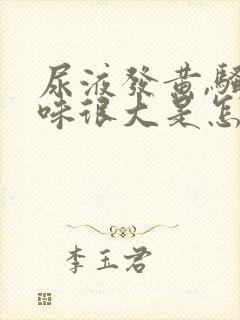 尿液發黄,騷
味很大是怎
李玉君